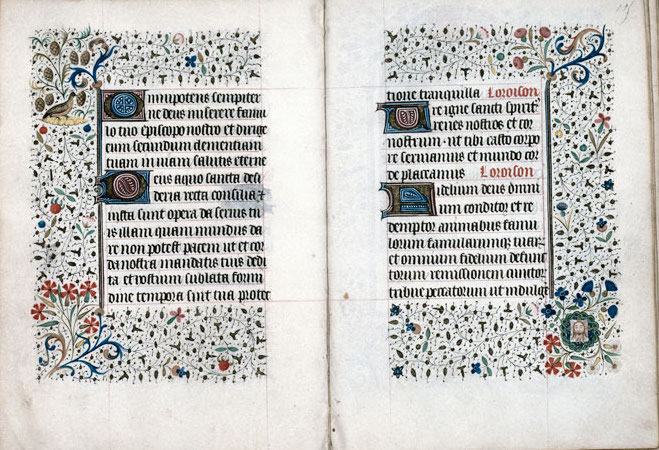 Omnipotens sempiter
ne deus miserere famu
lo tuo episcopo nostro et dirige
eum secundum clementiam
tuam in uiam salutis eterne
Deus a quo sancta desi
deria recta consilia et
iusta sunt opera da seruis tu
is illam quam mundus da
re non potest pacem ut et cor
da nostra mandatis tuis dedi
ta et hostium sublata formi
dine tempora sint tua protec
tione tranquilla Loroison
Ure igne sancti spiritꝰ
renes nostros et cor
nostrum · ut tibi casto corpo
re seruiamus et mundo cor
de placeamus Loroison
Fidelium deus omni
um conditor et re
demptor animabus famu
lorum famularumqꝫ tuaꝝ
et omnium fidelium defunc
torum remissionem cunctor
tribue peccatorum ut indulge